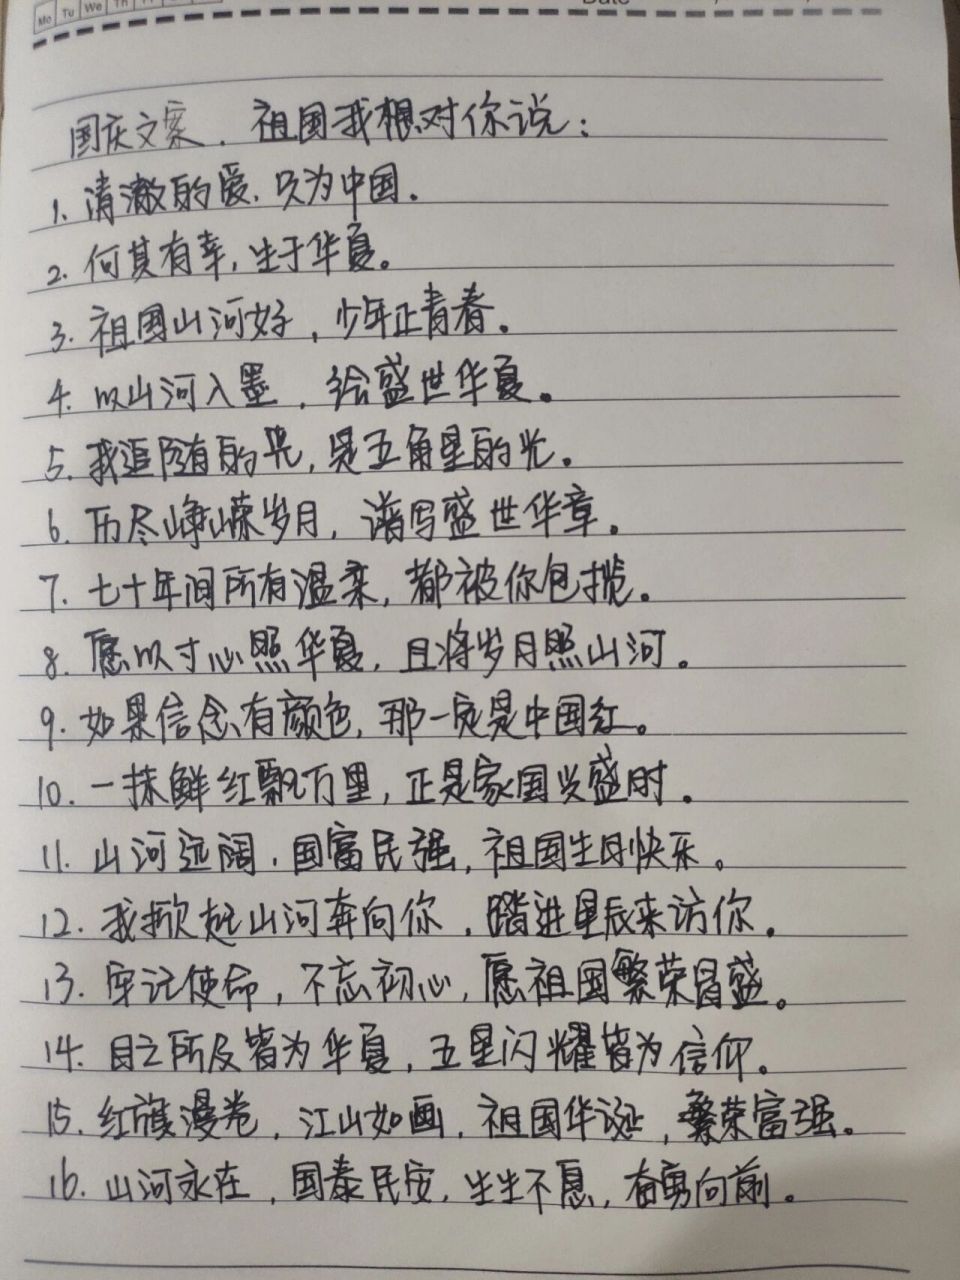 Mo Tu We Th
Date
国庆文案，祖国我想对你说：
1. 清澈的爱，只为中国。
2. 何其有幸，生于华夏。
3. 祖国山河好，少年正青春。
4. 以山河入墨，给盛世华夏。
5. 我追随的光，是五角星的光。
6. 历尽峥嵘岁月，谱写盛世华章。
7. 七十年间所有温柔，都被你包揽。
8. 愿以寸心照华夏，且将岁月照山河。
9. 如果信念有颜色，那一定是中国红。
10. 一抹鲜红飘万里，正是家国兴盛时。
11. 山河远阔，国富民强，祖国生日快乐。
12. 我掀起山河奔向你，踏进星辰来访你。
13. 牢记使命，不忘初心，愿祖国繁荣昌盛。
14. 目之所及皆为华夏，五星闪耀皆为信仰。
15. 红旗漫卷，江山如画，祖国华诞，繁荣富强。
16. 山河永在，国泰民安，生生不息，奋勇向前。